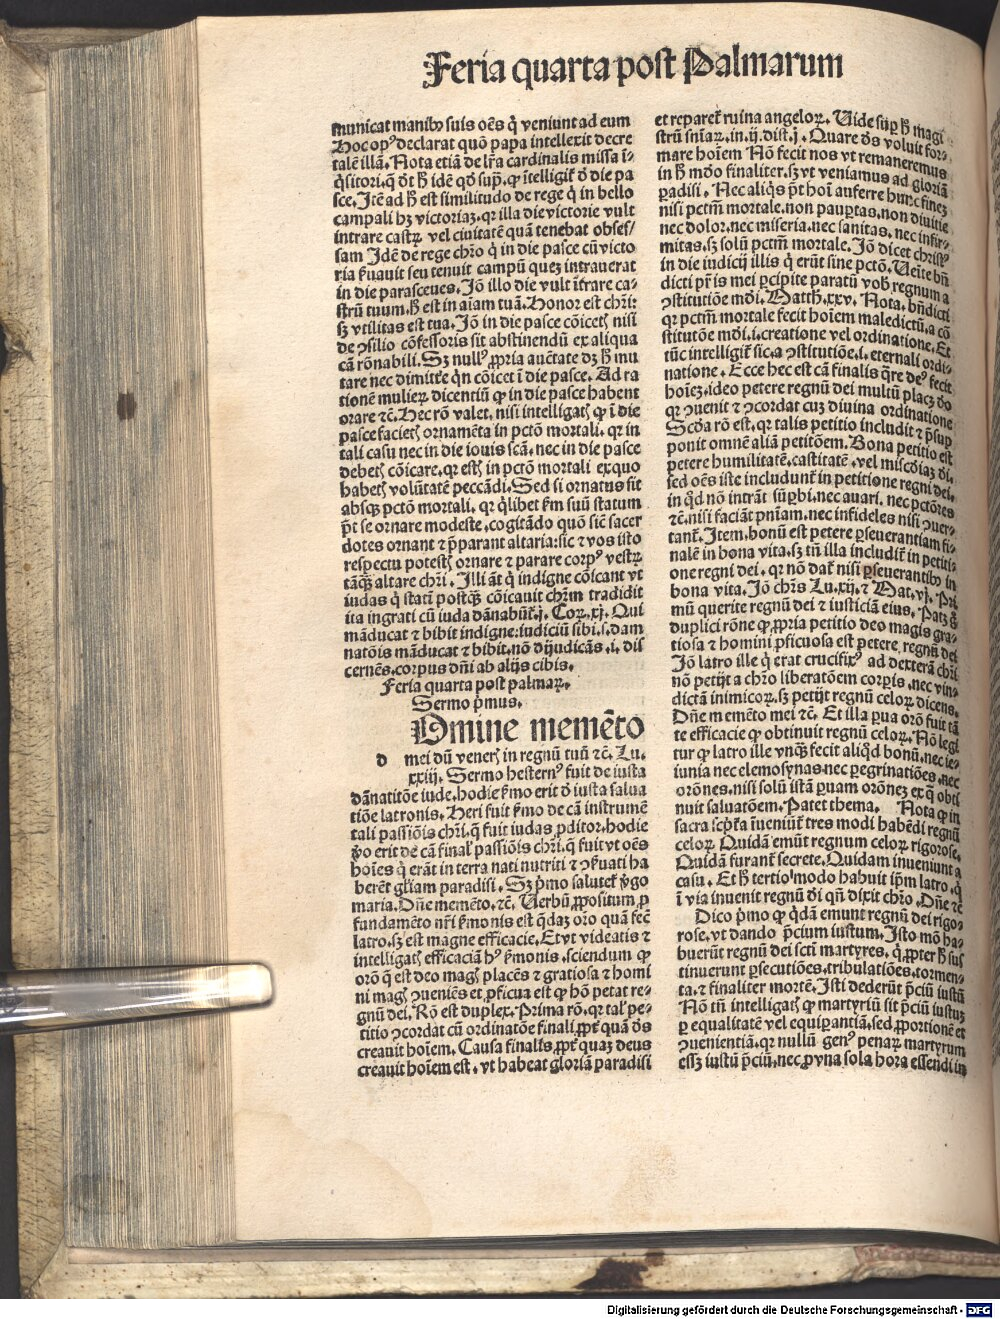 Feria quarta post Palmarum
municat manibꝰ suis oēs q̇ veniunt ad eum
Hoc opꝰ declarat quō papa intellexit decre
talē illā. Nota etiā de lr̄a cardinalis missa ī-
q̇sitori, q̇ dt̄ ħ idē qd̄ supͣ. ꝙ ītelligiť ď die pa
sce. Itē ad ħ est similitudo de rege q̇ in bello
campali hꝫ victoriaꝫ. qꝛ illa die victorie vult
intrare castrꝝ vel ciuitatē quā tenebat obses/
sam Idē de rege chr̄o q̇ in die pasce cū victo
ria ẜuauit seu tenuit campū queꝫ intrauerat
in die parasceues. Iō illo die vult ītrare ca-
strū tuum. ħ est in aīam tuā. Honor est chr̄i:
sꝫ vtilitas est tua. Iō in die pasce cōicetꝭ nisi
de ꝯsilio cōfessoris sit abstinendū ex aliqua
cā rōnabili. Sꝫ nullꝰ ꝓpria auc̄tate dꝫ ħ mu
tare nec dimitťe q̇n cōicet ī die pasce. Ad ra
tionē mulieꝝ dicentiū ꝙ in die pasce habent
orare ⁊c̄. Hec rō valet, nisi intelligatꝭ ꝙ ī die
pasce facietꝭ ornamēta in pctō mortali. qꝛ in
tali casu nec in die iouis scā. nec in die pasce
debetꝭ cōicare. qꝛ estꝭ in pctō mortali exquo
habetꝭ volūtatē peccādi. Sed si ornatus sit
absqꝫ pctō mortali. qꝛ q̇libet ẜm suū statum
pt̄ se ornare modeste. cogitādo quō sic̄ sacer
dotes ornant ⁊ p̄parant altaria: sic ⁊ vos isto
respectu potestꝭ ornare ⁊ parare corpꝰ vestꝝ
tāqꝫ altare chr̄i. Illi āt q̇ indigne cōicant vt
iudas q̇ statī postqꝫ cōicauit chrm̄ tradidit
ita ingrati cū iuda dānabūť. j. Coꝝ. xj. Qui
māducat ⁊ bibit indigne: iudiciū sibi. s. dam
natōis māducat ⁊ bibit. nō dijudicās. i. dis
cernēs. corpus dn̄i ab alijs cibis.
Feria quarta post palmaꝝ.
Sermo p̄mus.
Omine memēto
d mei dū venerꝭ in regnū tuū ⁊c̄. Lu.
xxiij. Sermo hesternꝰ fuit de iusta
dānatitōe iude. hodie ẜmo erit ď iusta salua
tiōe latronis. Heri fuit ẜmo de cā instrumē
tali passiōis chr̄i. q̇ fuit iudas ꝓditor. hodie
ꝟo erit de cā final̕ passiōis chr̄i. q̇ fuit vt oēs
hoīes q̇ erāt in terra nati nutriti ⁊ ꝯẜuati ha
berēt gl̄iam paradisi. Sꝫ p̄mo saluteť ꝟgo
maria. Dn̄e memēto. ⁊c̄. Verbū ꝓpositum ꝓ
fundamēto nr̄i ẜmonis est q̄daꝫ oro quā fec̄
latro. sꝫ est magne efficacie. Et vt videatis ⁊
intelligatꝭ efficaciā hꝰ ẜmonis. sciendum ꝙ
orō q̄ est deo magꝭ placēs ⁊ gratiosa ⁊ homi
ni magꝭ ꝯueniēs et ꝓficua est ꝙ hō petat re-
gnū dei. Rō est duplex. Prima rō. qꝛ tal̕ pe-
titio ꝯcordat cū ordinatōe finali ꝓpť quā dꝰs
creauit hoīem. Causa final̕s ꝓpť quaꝫ deus
creauit hoīem est. vt habeat gloriā paradisi
et reparet̕ ruina angeloꝝ. Uide supͣ ħ magi
strū sn̄iaꝝ. in. ij. dist. j. Quare dꝰs voluit for-
mare hoīem Nō fecit nos vt remaneremus
in ħ mūo finaliter. sꝫ vt veniamus ad gloriā
ꝑadisi. Nec aliqͥs pt̄ hoī auferre hunc fineꝫ
nisi pctm̄ mortale. non pauꝑtas. non diuitie
nec dolor. nec miseria. nec sanitas. nec infir-
mitas. sꝫ solū pctm̄ mortale. Iō dicet christꝰ
in die iudicij illis q̇ erūt sine pctō. Uenite bn̄
dicti pr̄is mei ꝑcipite paratū vob̕ regnum a
ꝯstitutiōe mūdi. Matth̕. xxv. Nota. bn̄dicti
qꝛ pctm̄ mortale fecit hoīem maledictū. a cō
stitutōe mūdi. i. creatione vel ordinatione. Et
tūc intelligiť sic. a ꝯstitutiōe. i. eternali ordi-
natione. Ecce hec est cā finalis q̄re deꝰ fecit
hoīeꝫ. ideo petere regnū dei multū placꝫ deo
qꝛ ꝯuenit ⁊ ꝯcordat cuꝫ diuina ordinatione
Scd̄a rō est. qꝛ talis petitio includit ⁊ p̄sup
ponit omnē aliā petitōem. Bona petitio est
petere humilitatē. castitatē. vel miscd̄iaꝫ dei.
sed oēs iste includunť in petitione regni dei.
in qd̄ nō intrāt suꝑbi. nec auari. nec pctōres
⁊c̄. nisi faciāt pn̄iam. nec infideles nisi ꝯuer-
tanť. Item. bonū est petere ꝑseuerantiam fi-
nalē in bona vita. sꝫ tn̄ illa includiť in petiti-
one regni dei. qꝛ nō dať nisi ꝑseuerantibꝰ in
bona vita. Iō chr̄s Lu. xij. ⁊ Mat. vj. Pri
mū querite regnū dei ⁊ iusticiā eius. Patꝫ g̊
duplici rōne ꝙ ꝓpria petitio deo magis gra-
tiosa ⁊ homini ꝓficuosa est petere regnū dei
Iō latro ille q̇ erat crucifixꝰ ad dexterā chr̄i
nō petijt a chr̄o liberatōem corꝑis. nec vin-
dictā inimicoꝝ. sꝫ petijt regnū celoꝝ dicens.
Dn̄e memēto mei ⁊c̄. Et illa ꝑua orō fuit tā
te efficacie ꝙ obtinuit regnū celoꝝ. Nō legi
tur ꝙ latro ille vnqꝫ fecit aliqd̄ bonū. nec ie-
iunia nec elemosynas. nec ꝑegrinatiōes. nec
orōnes. nisi solū istā ꝑuam orōneꝫ ex q̄ obti
nuit saluatōem. Patet thema. Nota ꝙ in
sacra scpͥta īueniūť tres modi habēdi regnū
celoꝝ. Quidā emūt regnum celoꝝ rigorose.
Quidā furanť secrete. Quidam inueniunt a
casu. Et ħ tertio modo habuit ip̄m latro. q̇
ī via inuenit regnū dei qn̄ dixit chr̄o. Dn̄e ⁊c̄
Dico p̄mo ꝙ q̇dā emunt regnū dei rigo-
rose. vt dando p̄cium iustum. Isto mō ha-
buerūt regnū dei sct̄i martyres. q̇ ꝓpter ħ suſ
tinuerunt ꝑsecutiōes. tribulatiōes. tormen-
ta. ⁊ finaliter mortē. Isti dederūt p̄ciū iustū
Nō tn̄ intelligatꝭ ꝙ martyriū sit p̄ciū iustuꝫ
ꝑ equalitatē vel equiꝑantiā. sed ꝓportionē et
ꝯuenientiā. qꝛ nullū genꝰ penaꝝ martyrum
esſꝫ iustū p̄ciū. nec ꝓ vna sola hora essendi in
Digitalisierung gefördert durch die Deutsche Forschungsgemeinschaft - DFG